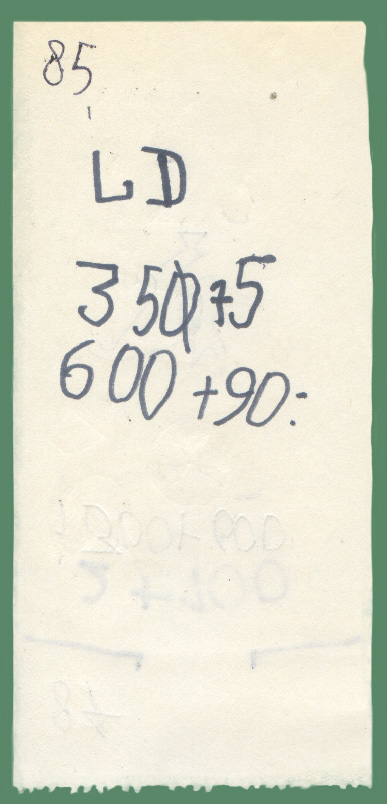 85
LD
350+5
600+90:-